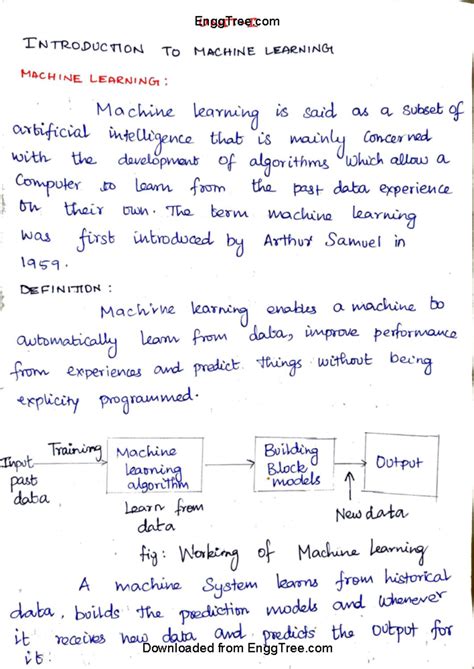 EnggTree.com
INTRODUCTION TO MACHINE LEARNING
MACHINE LEARNING :
Machine learning is said as a subset of
artificial intelligence that is mainly concerned
with the development of algorithms which allow a
Computer to learn from the past data experience
on their own. The term machine learning
was first introduced by Arthur Samuel in
1959.
DEFINITION :
Machine learning enables a machine to
automatically learn from data, improve performance
from experiences and predict things without being
explicity programmed.
Input past data
Training
Machine learning algorithm
Learn from data
Building Block models
New data
Output
fig: Working of Machine Learning
A machine System learns from historical
data, builds the prediction models and whenever
it receives new data and predicts the output for
it.
Downloaded from EnggTree.com